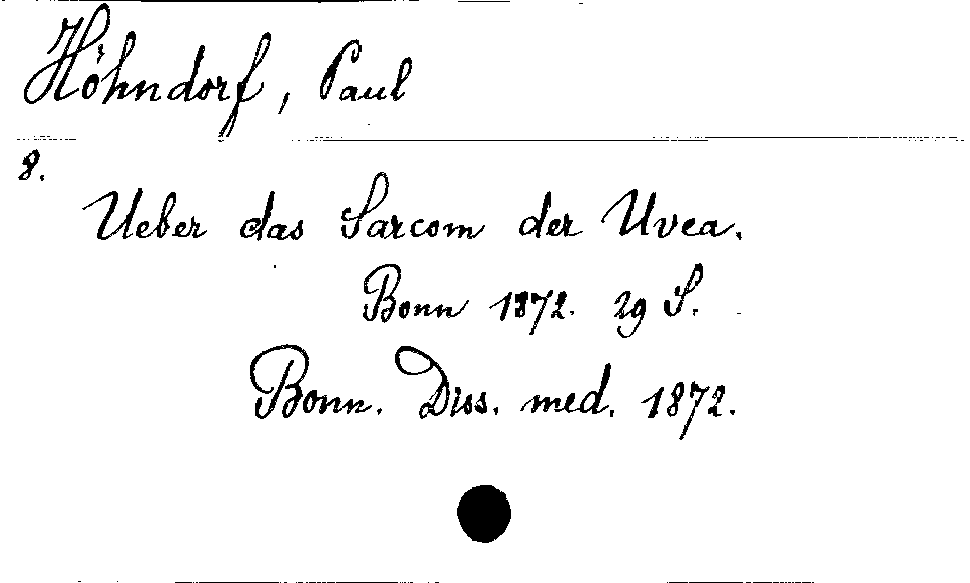 Höhndorf, Paul
8.
Ueber das Sarcom der Uvea.
Bonn 1872. 29 S.
Bonn. Diss. med. 1872.